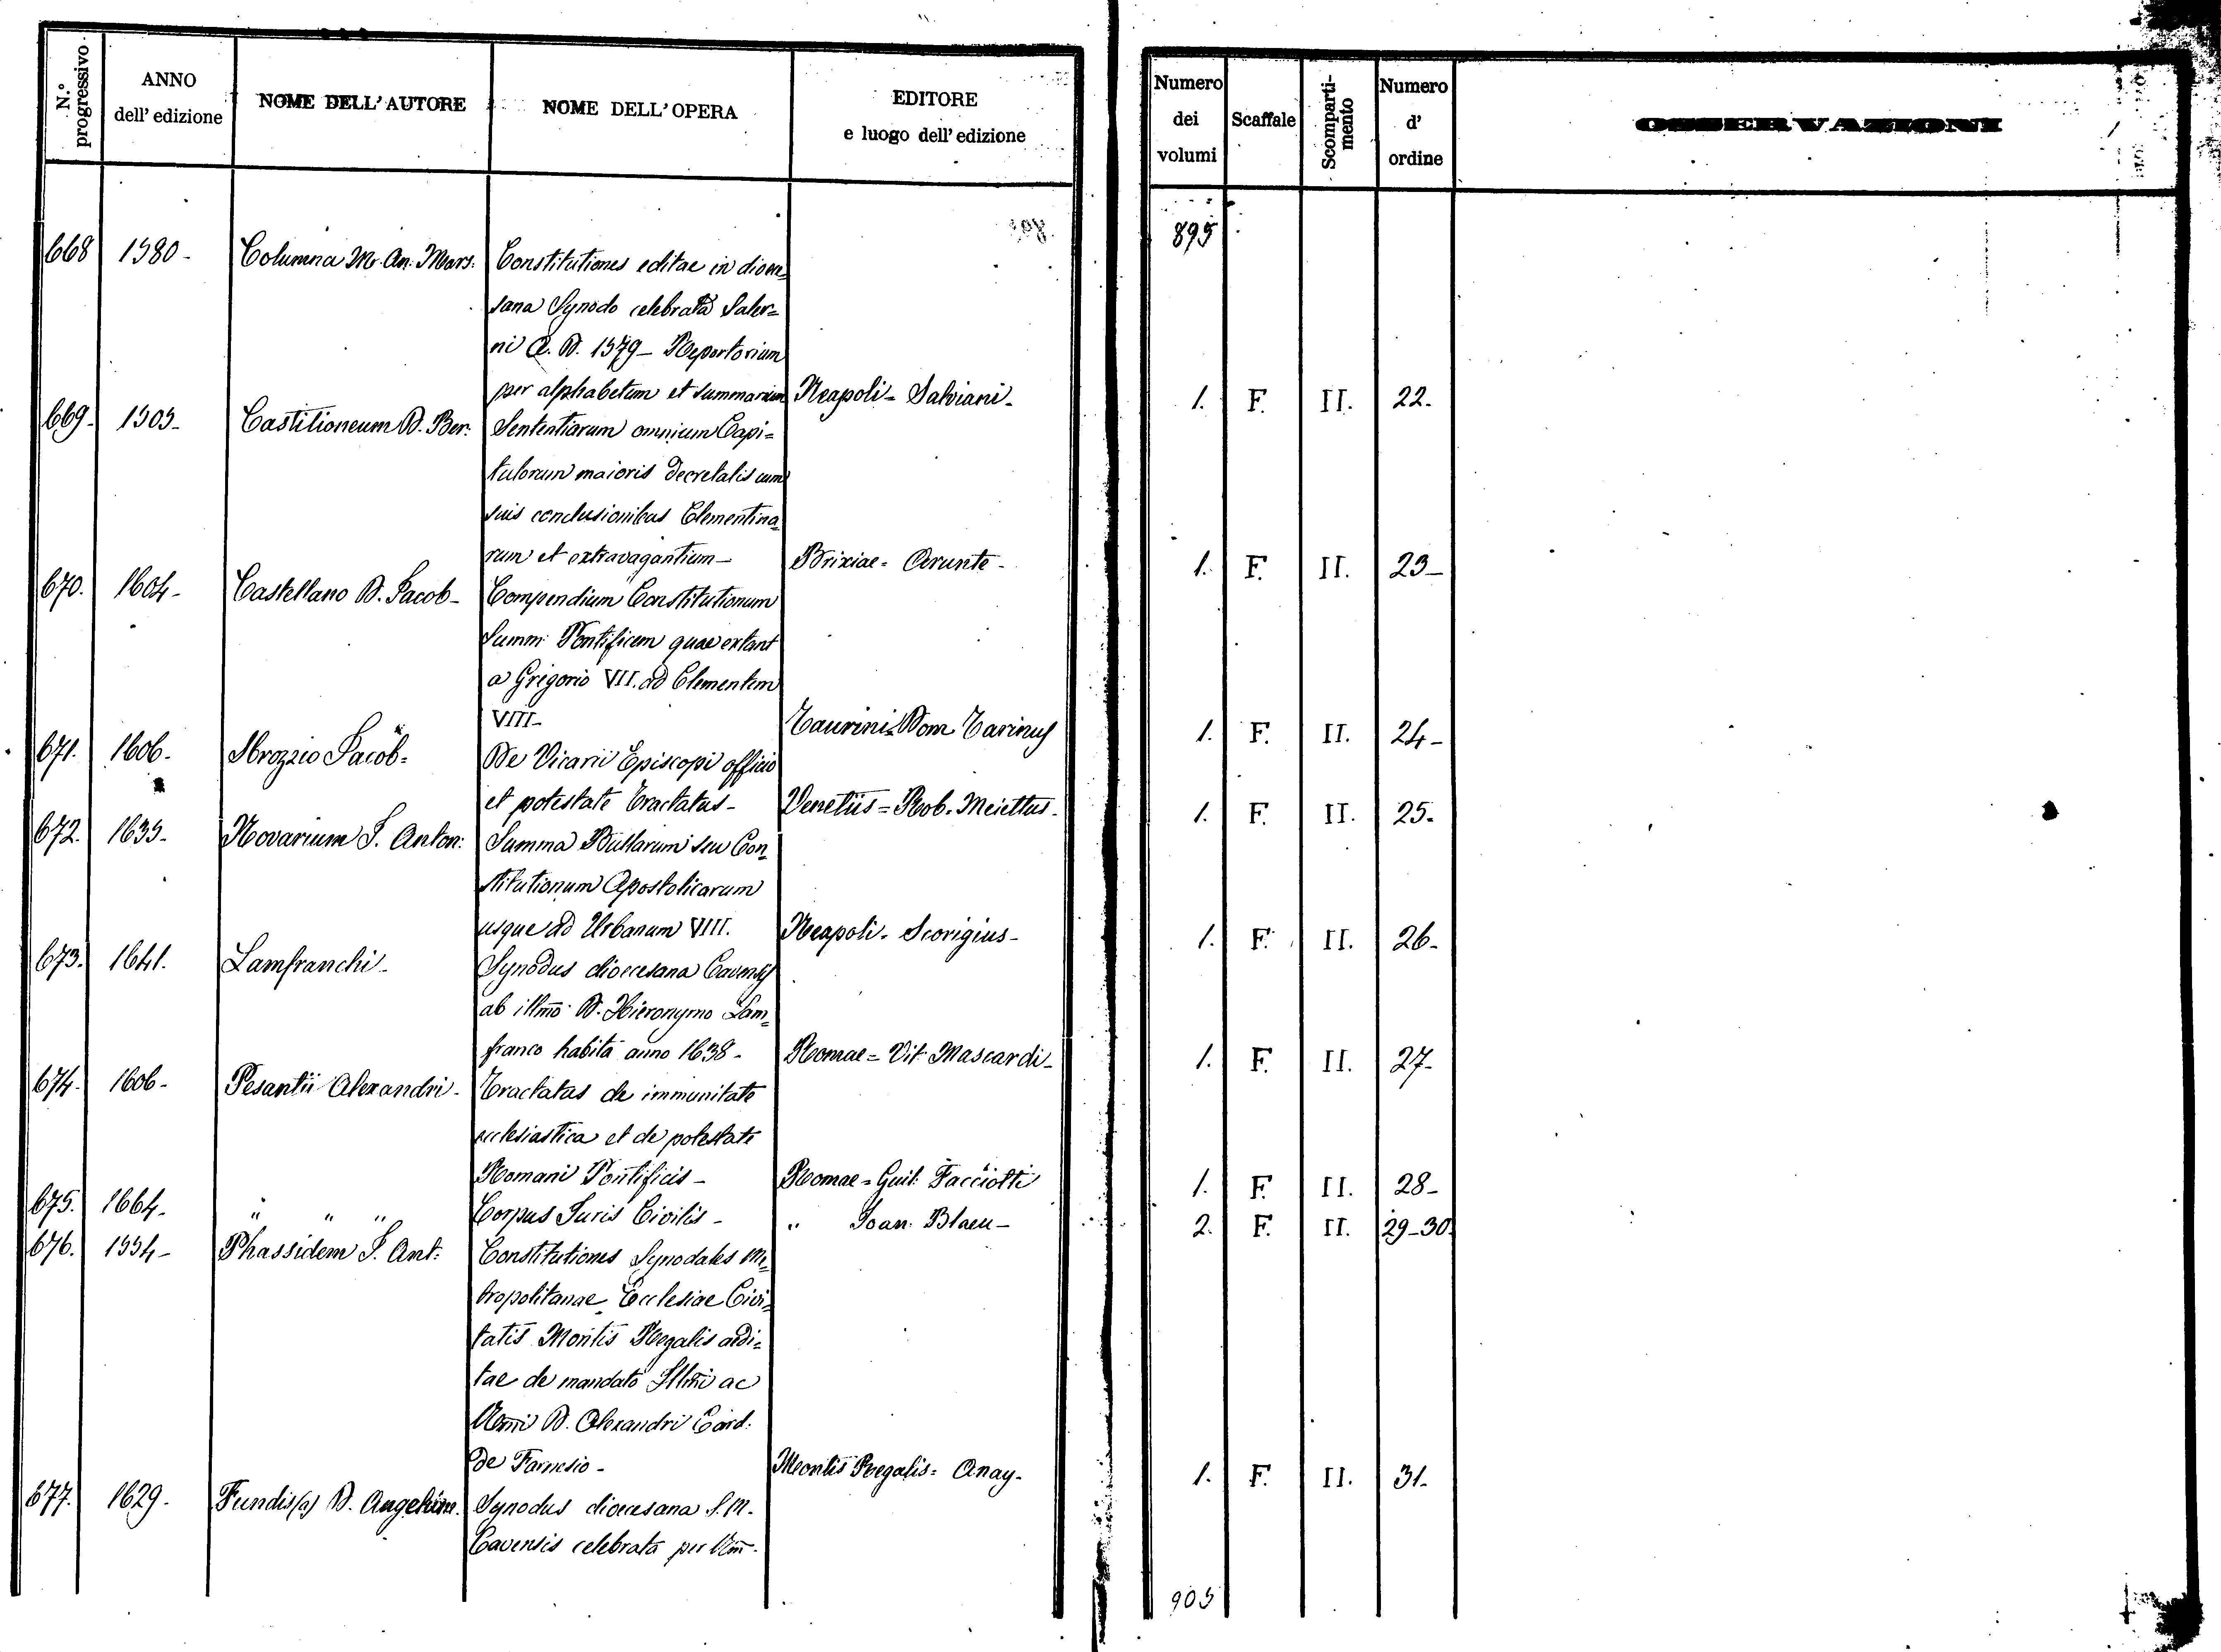 N.º progressivo
ANNO dell' edizione
NOME DELL' AUTORE
NOME DELL' OPERA
EDITORE e luogo dell' edizione
Numero dei volumi
Scaffale
Scomparti-mento
Numero d' ordine
OSSERVAZIONI
895
668 1580- Columna M. An. Mars: Constitutiones editae in dioce=
sana Synodo celebrata Saler=
ni A. D. 1579- Repertorium
per alphabetum et summarium Neapoli- Salviani- 1. F. II. 22.
669- 1505- Castilioneum D. Ber. Sententiarum omnium Capi=
tulorum maioris decretalis cum
suis conclusionibus Clementina=
rum et extravagantium- Brixiae= Arunte- 1. F. II. 23-
670. 1604- Castellano D. Jacob- Compendium Constitutionum
Summ: Pontificem quae extant
a Grigorio VII. ad Clementem
VIII- Taurini=Dom Tarinus 1. F. II. 24-
671. 1606- Sbrozzio Jacob= De Vicarii Episcopi officio
et potestate Tractatus- Venetiis=Rob. Meiettus- 1. F. II. 25-
672. 1635- Novarium J. Anton: Summa Bullarum seu Con=
stitutionum Apostolicarum
usque ad Urbanum VIII. Neapoli- Scorigius- 1. F. II. 26-
673. 1641. Lamfranchi- Synodus dioecesana Cavensis
ab illmo D. Hieronymo Lam=
franco habita anno 1638- Romae= Vit Mascardi- 1. F. II. 27-
674. 1606- Pesantii Alexandri- Tractatus de immunitate
ecclesiastica et de potestate
Romani Pontificis- Romae=Guil: Facciotti 1. F. II. 28-
675. 1664- " " " Corpus Juris Civilis- " Joan. Blaeu- 2. F. II. 29-30
676. 1554- Phassidem J. Ant: Constitutiones Synodales Me=
tropolitanae Ecclesiae Civi=
tatis Montis Regalis aedi=
tae de mandato Illmi ac
Rmi D. Alexandri Card:
de Farnesio- Montis Regalis= Anay- 1. F. II. 31-
677. 1629- Fundis(a) D. Angelum. Synodus dioecesana S. M.
Cavensis celebrata per Rm-
905